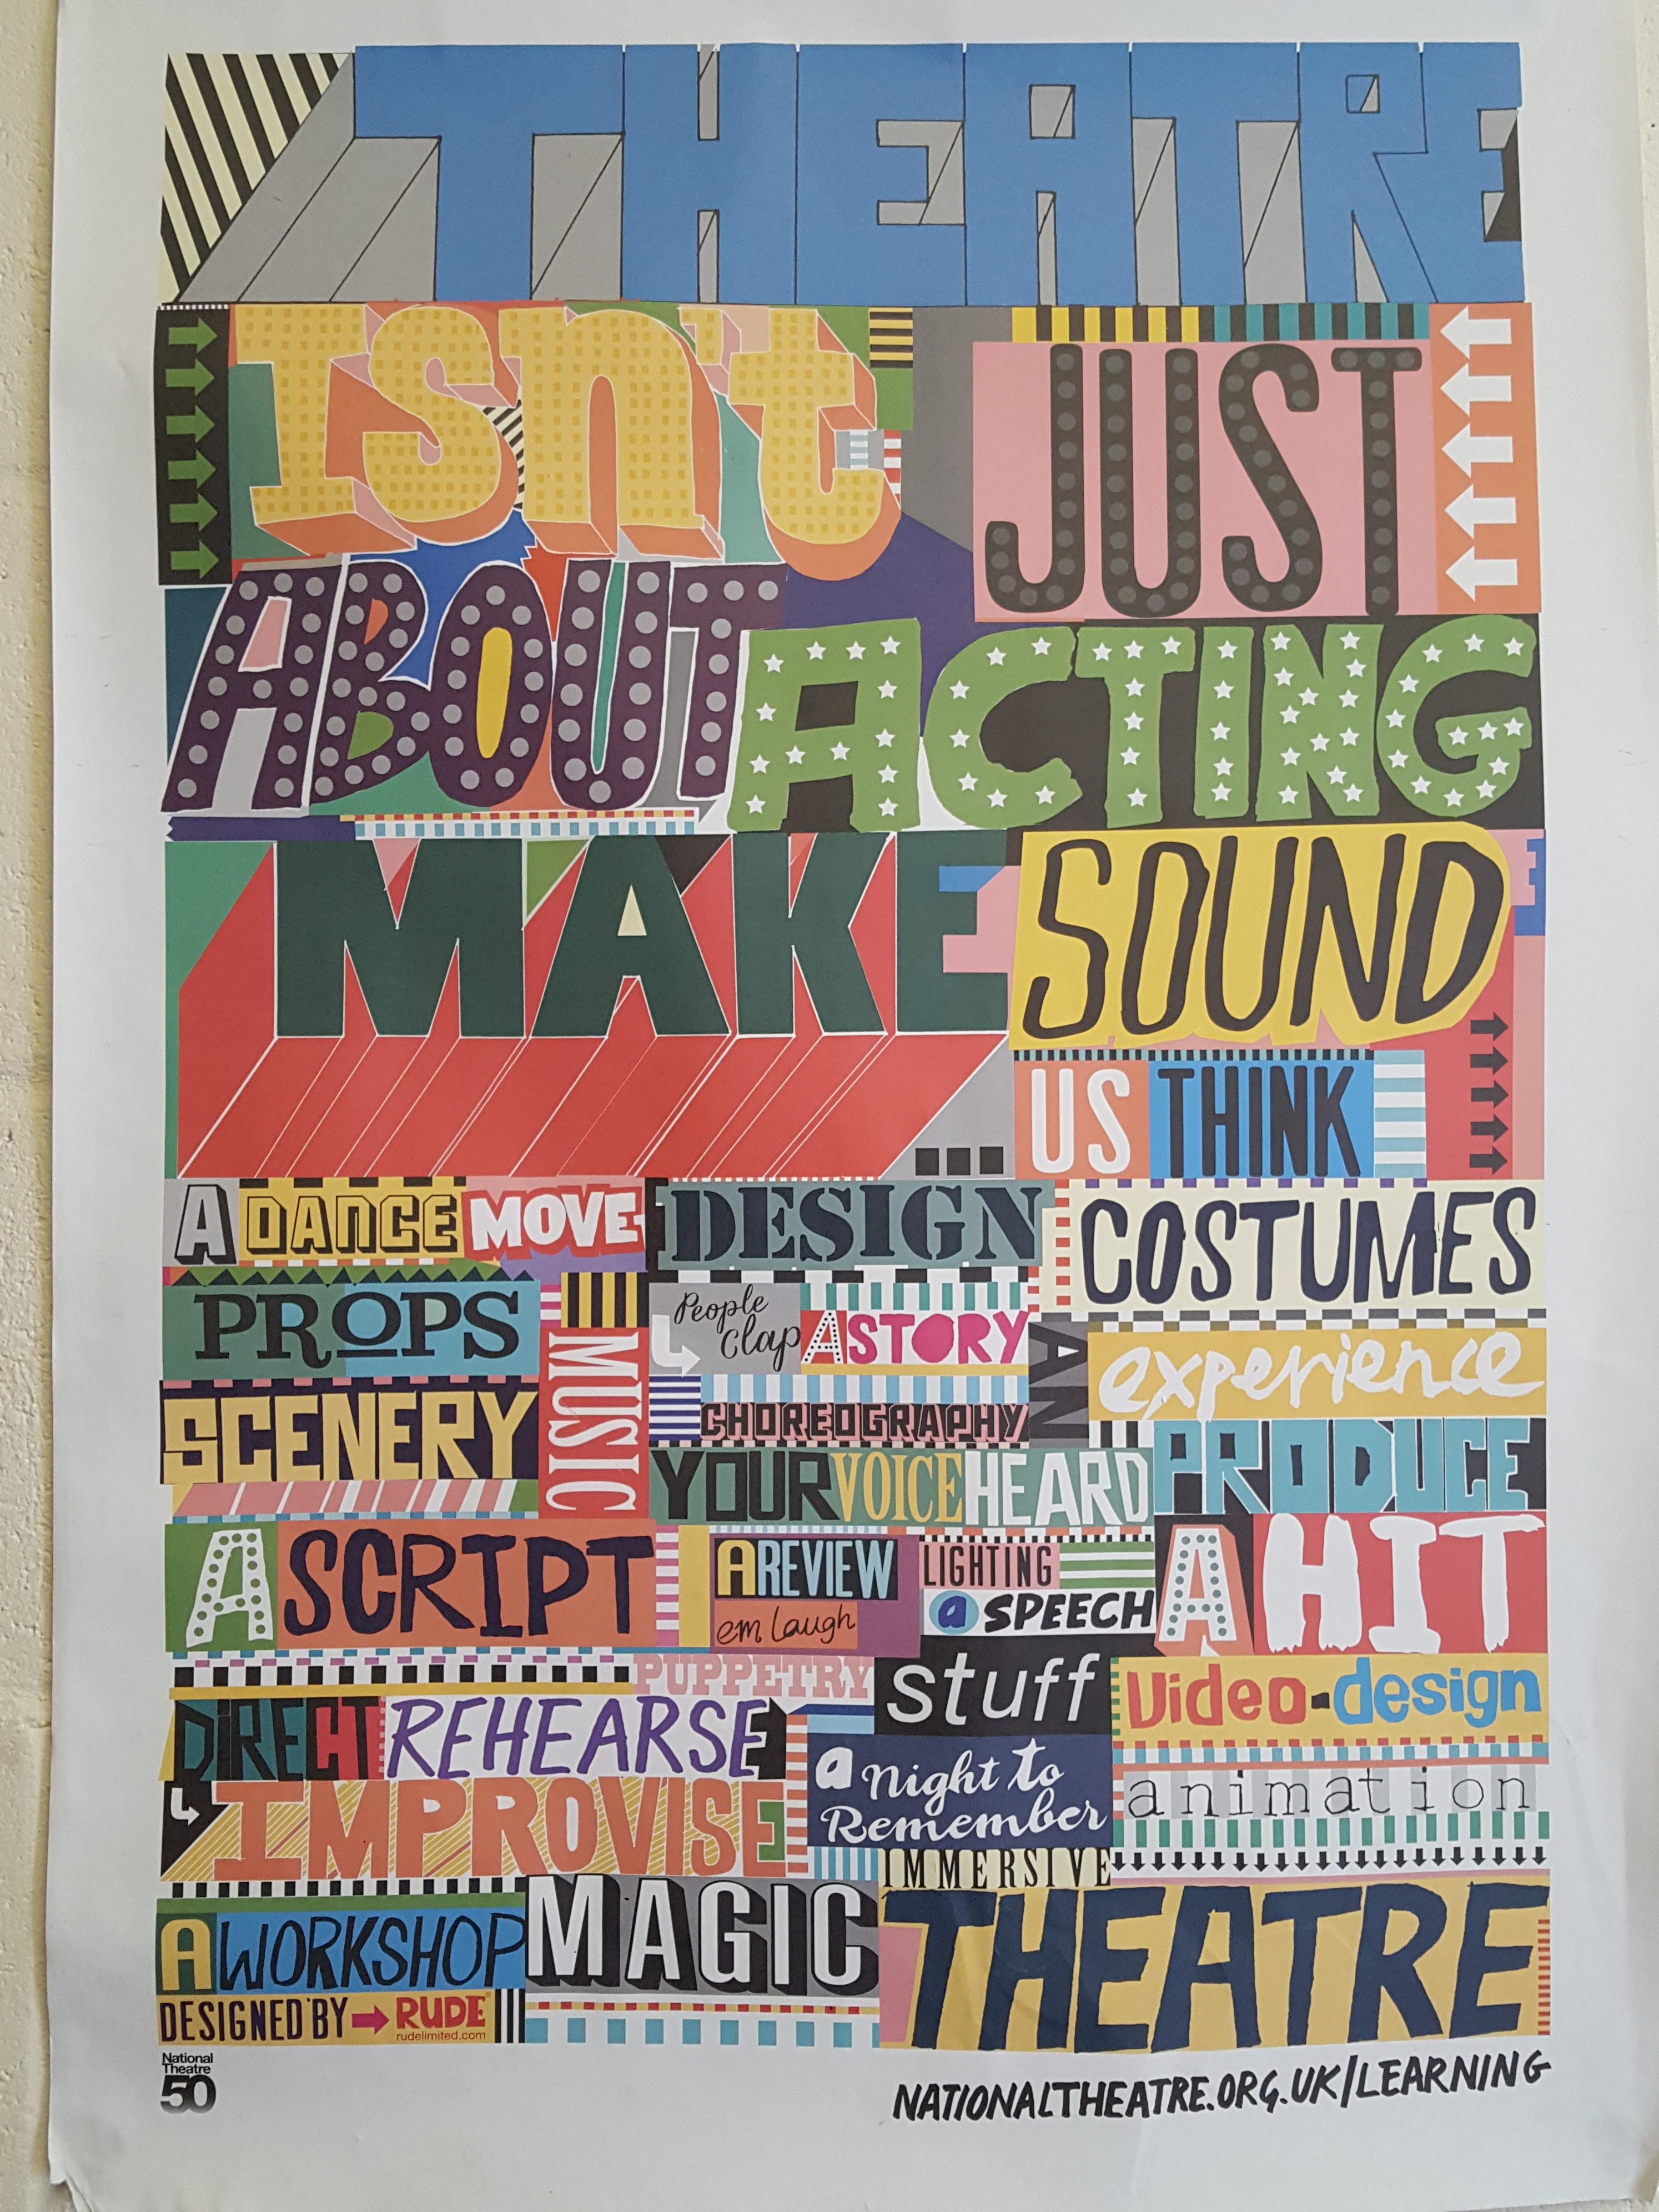 THEATRE
Isn't JUST
ABOUT ACTING
MAKE SOUND
... US THINK
A DANCE MOVE DESIGN COSTUMES
PROPS MUSIC People Clap A STORY AN experience
SCENERY CHOREOGRAPHY
YOUR VOICE HEARD PRODUCE
A SCRIPT A REVIEW LIGHTING A HIT
em laugh a SPEECH
PUPPETRY stuff Video-design
DIRECT REHEARSE
IMPROVISE a Night to Remember animation
IMMERSIVE
A WORKSHOP MAGIC THEATRE
DESIGNED BY RUDE
rudelimited.com
National Theatre 50
NATIONALTHEATRE.ORG.UK/LEARNING